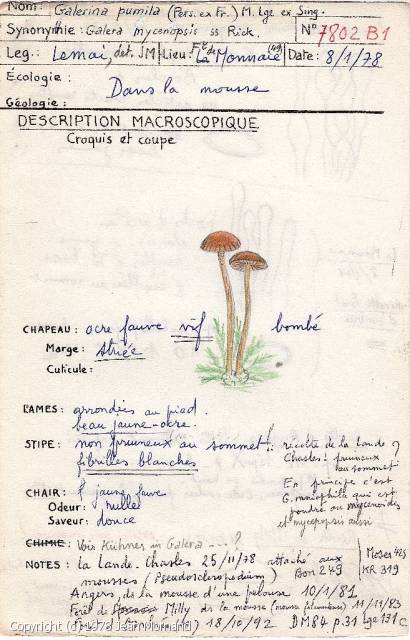 Nom: Galerina pumila (Pers. ex Fr.) M. Lge ex Sing.
Synonymie: Galera mycenopsis ss Rick. N° 7802 B1
Leg.: Lemai, det. JM Lieu: Ft de La Monnaie (49) Date: 8/1/78
Écologie: Dans la mousse
Géologie:
DESCRIPTION MACROSCOPIQUE
Croquis et coupe
CHAPEAU: ocre fauve vif bombé
Marge: striée
Cuticule:
LAMES: arrondies au pied.
beau jaune-ocre.
STIPE: non pruineux au sommet!
fibrilles blanches
récolte de la lande
Charles: pruineux
au sommet
En principe c'est
G. mniophila qui est
poudré
et mycenopsis aussi
CHAIR: jaune fauve
Odeur: nulle
Saveur: douce
CHIMIE: Voir Kühner in Galera ---?
NOTES: la lande. Charles 25/11/78 attaché aux
mousses (Pseudoscleropodium) Bon 249
Moser 425
KR 319
Angers, ds la mousse d'une pelouse 10/1/81
Forêt de Milly ds la mousse 11/11/83
18/10/92 DM84 p.31 Lge 131 C
Copyright (c) 1978 Jean Mornand